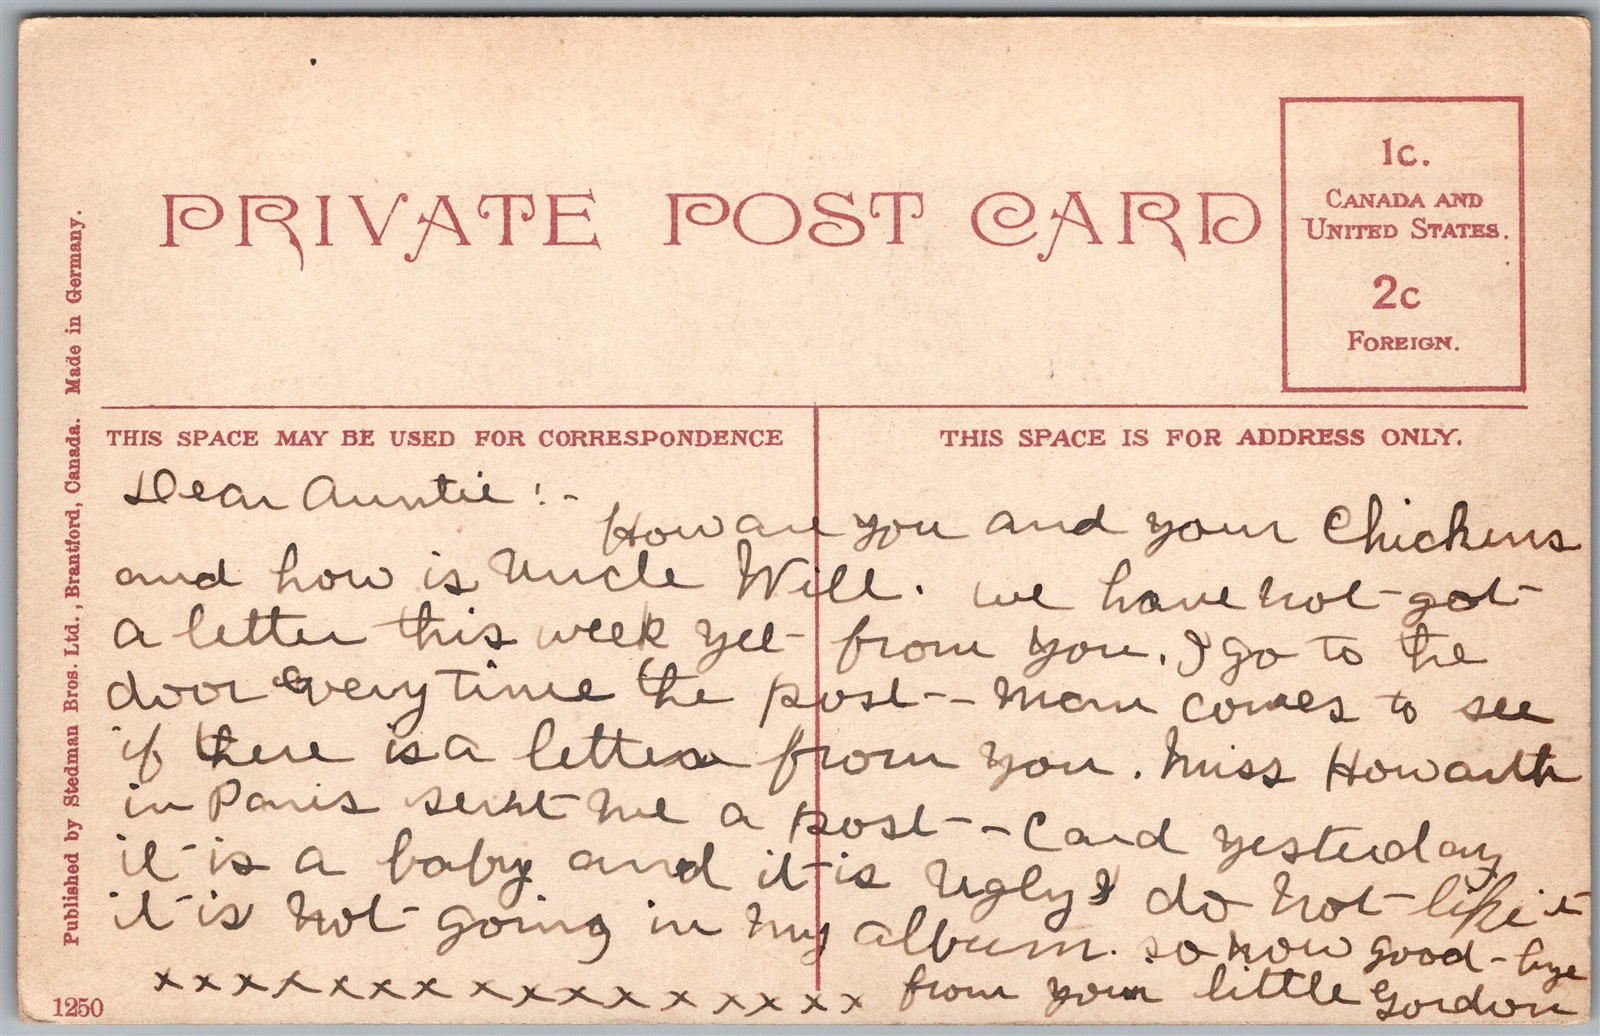 PRIVATE POST CARD
1c.
CANADA AND
UNITED STATES.
2c
FOREIGN.
Published by Stedman Bros. Ltd., Brantford, Canada. Made in Germany.
THIS SPACE MAY BE USED FOR CORRESPONDENCE
THIS SPACE IS FOR ADDRESS ONLY.
Dear Auntie :-
How are you and your Chickens
and how is Uncle Will. we have not got
a letter this week yet from you. I go to the
door every time the post-man comes to see
if there is a letter from you. Miss Howarth
in Paris sent me a post-card yesterday
it is a baby and it is ugly I do not like it
it is not going in my album. so now good-bye
from your little Gordon
x x x x x x x x x x x x x x x x x
1250